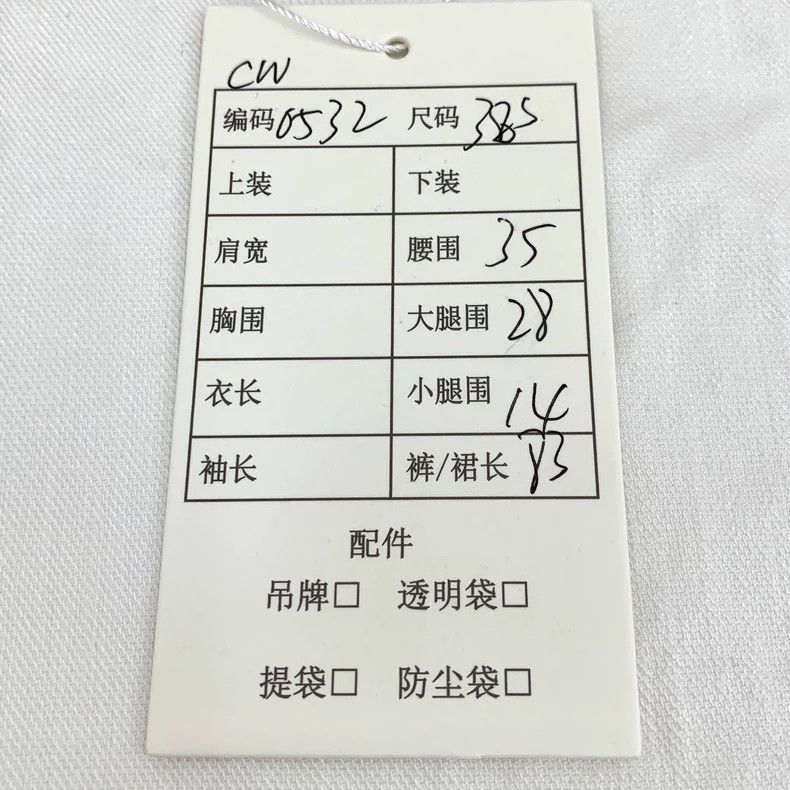 CW
编码 0532 尺码 385
上装 下装
肩宽 腰围 35
胸围 大腿围 28
衣长 小腿围 14
袖长 裤/裙长
配件
吊牌□ 透明袋□
提袋□ 防尘袋□